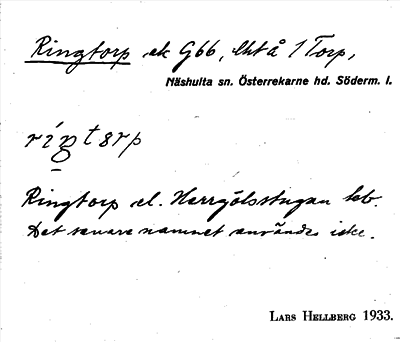 Ringtorp ek G66, lht å 1 Torp,
Näshulta sn. Österrekarne hd. Söderm. l.
Ringtorp el. Herrgölsstugan
Det senare namnet användes icke.
LARS HELLBERG 1933.